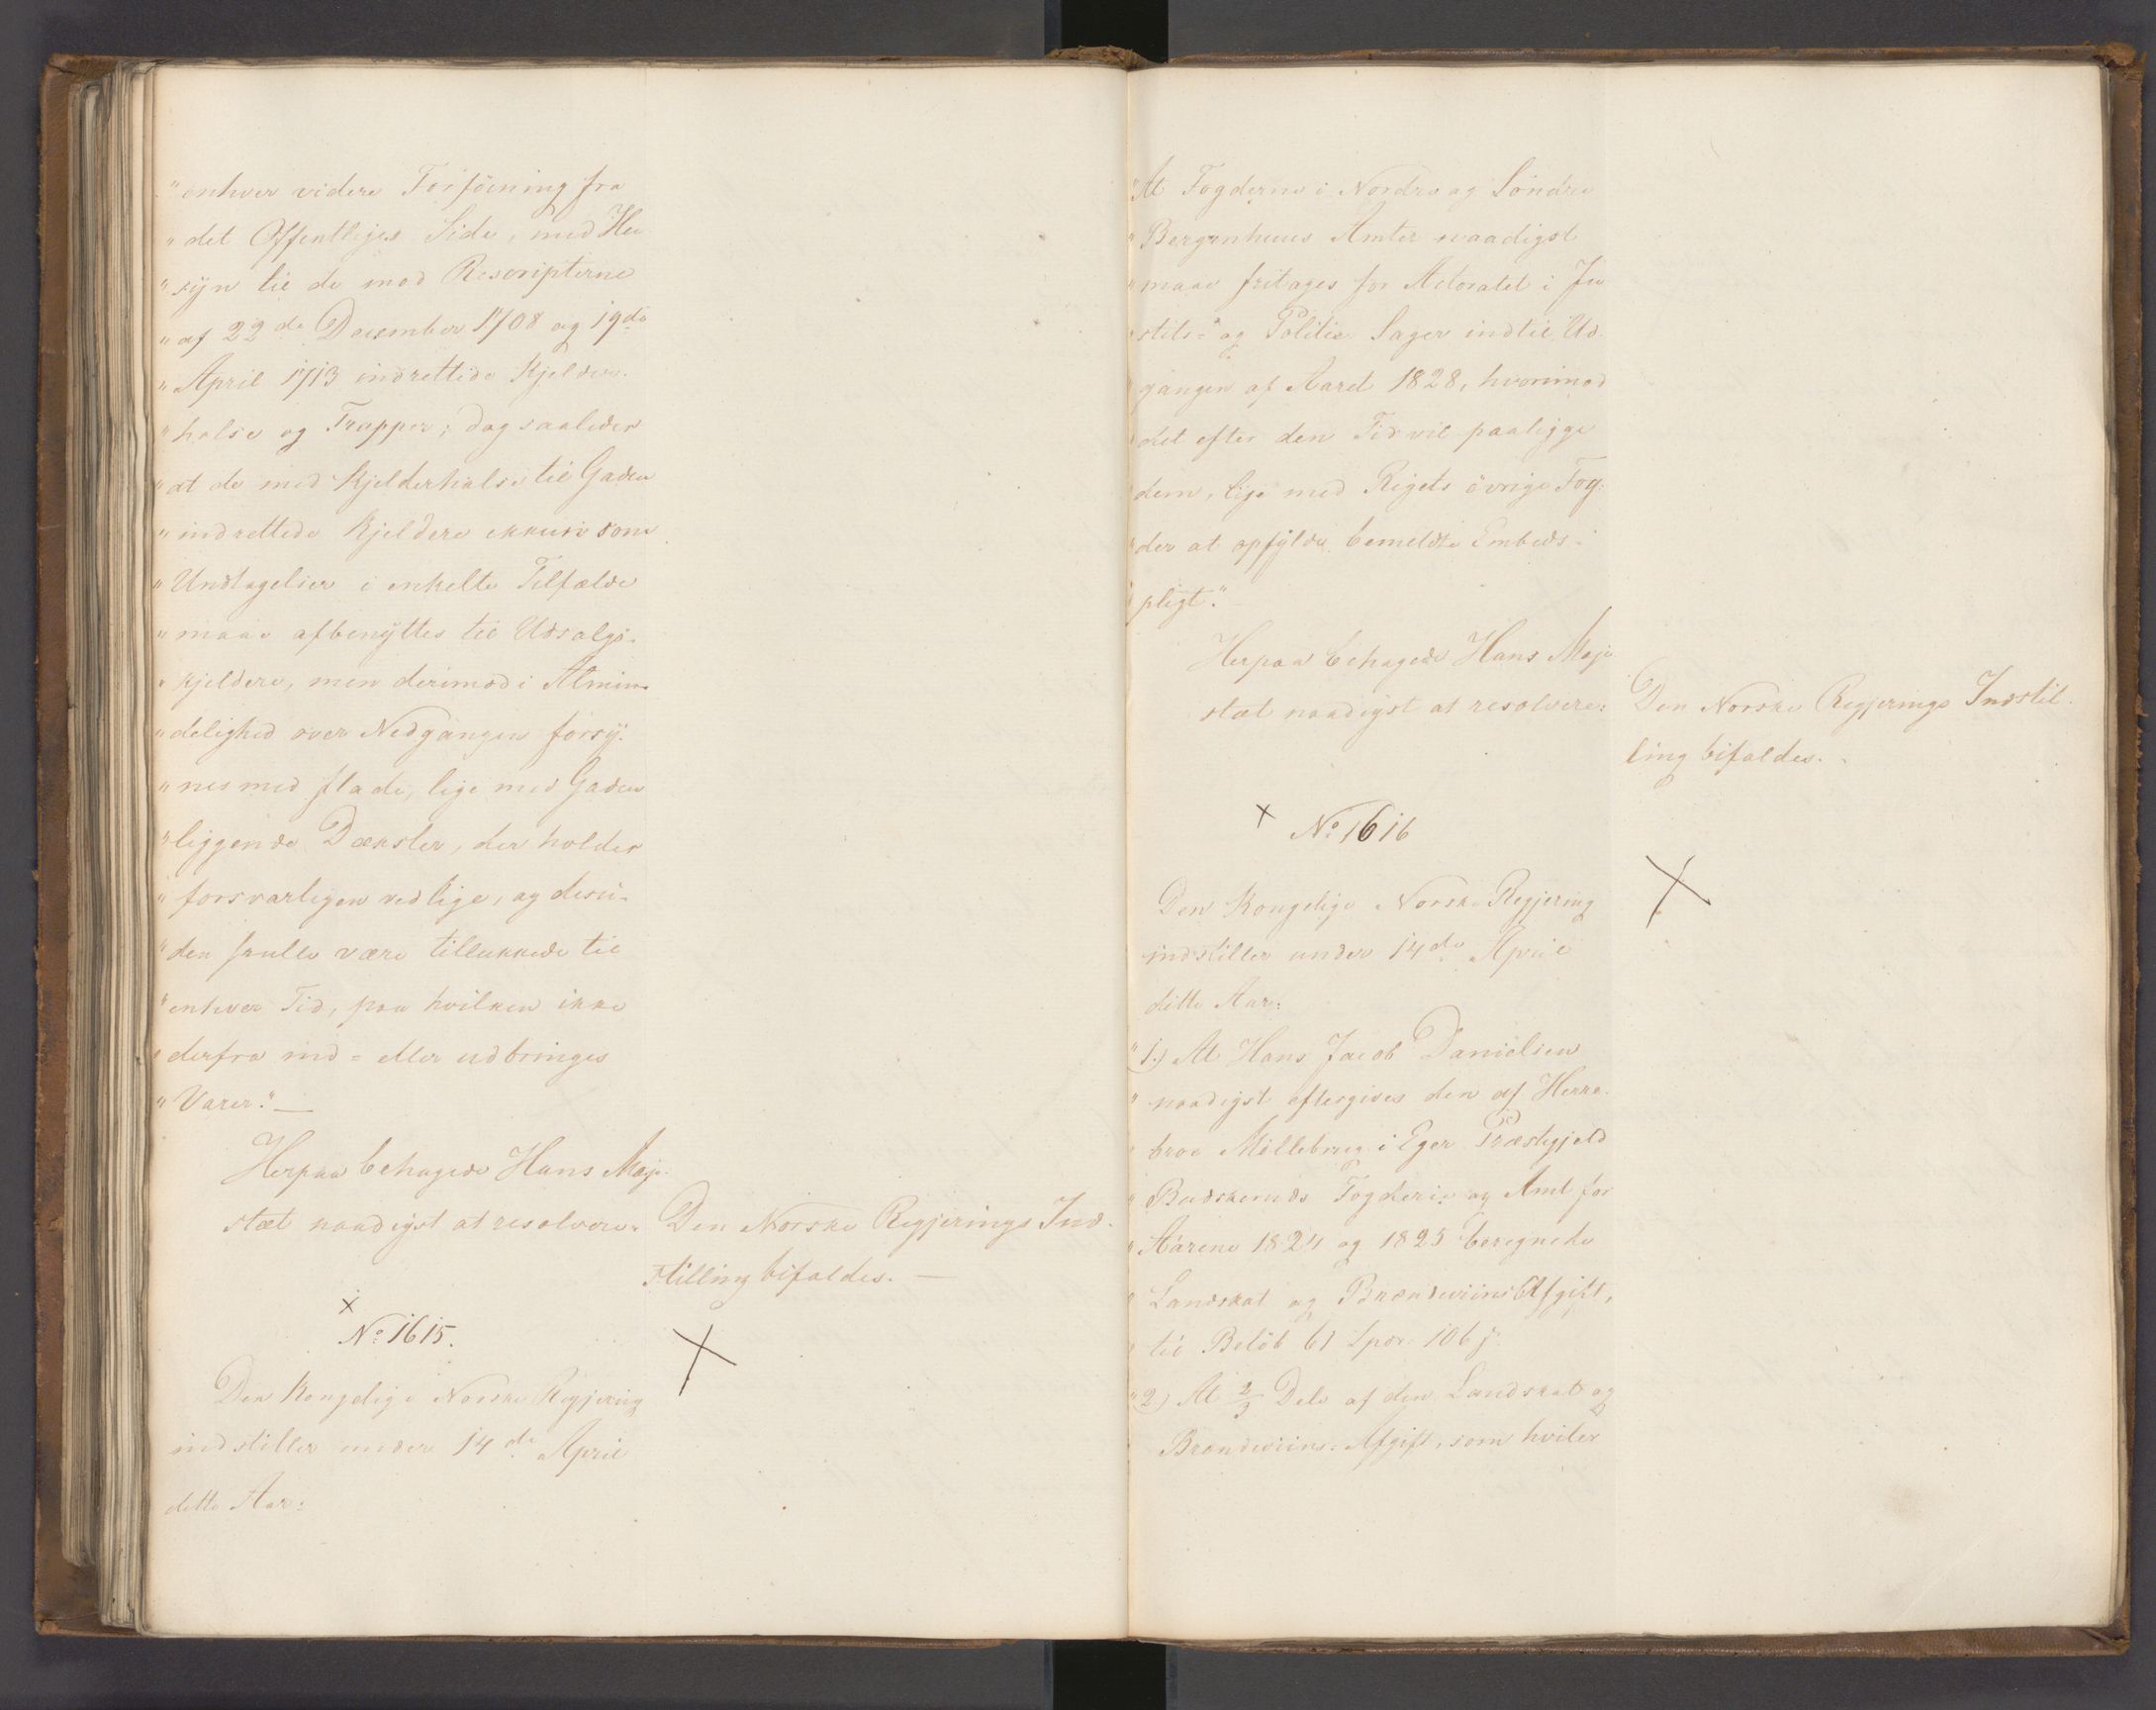 "enhver videre Forføining fra
"det Offentliges Side, med Hen
"syn til de mod Rescripterne
"af 22de December 1708 og 19de
"April 1713 indrettede Kjelder-
"halse og Trapper; dog saaledes
"at de med Kjelderhalse til Gaden
"indrettede Kjeldere ekkun som
"Undtagelser i enkelte Tilfælde
"maae afbenyttes til Udsalgs-
"kjeldere, men derimod i Almin-
"delighed over Nedgangen forsy-
"nes med flade, lige med Gaden
"liggende Dæksler, der holdes
"forsvarligen vedlige, og desu-
"den skulle være tillukkede til
"enhver Tid, paa hvilken ikke
"derfra ind= eller udbringes
"Varer." —
Herpaa behagede Hans Maje-
stæt naadigst at resolvere:
Den Norske Regjerings Ind-
stilling bifaldes. —
x
No 1615.
Den kongelige Norske Regjering
indstiller under 14de April
dette Aar:
"At Fogderne i Nordre og Søndre
"Bergenhuus Amter naadigst
"maae fritages for Actoratet i Ju
"stits= og Politie Sager indtil Ud-
"gangen af Aaret 1828, hvorimod
"det efter den Tid vil paaligge
"dem, lige med Rigets övrige Fog-
"der at opfylde bemeldte Embeds-
"pligt."
Herpaa behagede Hans Maje
stæt naadigst at resolvere:
Den Norske Regjerings Indstil-
ling bifaldes.
x
No 1616
Den Kongelige Norske Regjering
indstiller under 14de April
dette Aar:
"1.) At Hans Jacob Danielsen
"naadigst eftergives den af Herre-
"broe Möllebrug i Eger Præstegjeld
"Buskeruds Fogderie og Amt for
"Aarene 1824 og 1825 beregnede
"Landskat og Brændeviins Afgift,
"til Beløb 61 Spdr. 106 ſ.
"2) At 2/3 Dele af den Landskat og
Brændeviins-Afgift, som hviler